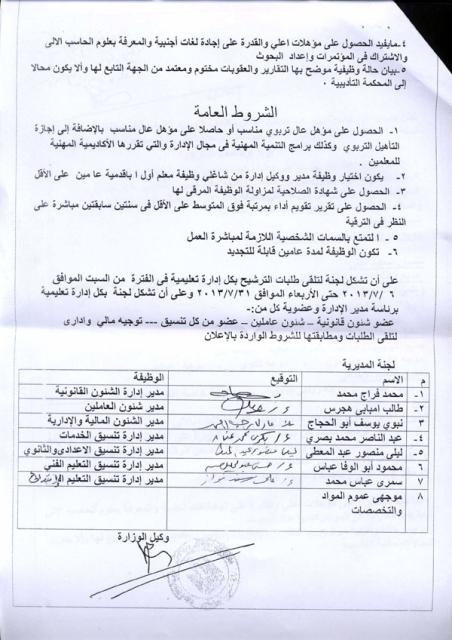 ٤- مايفيد الحصول على مؤهلات اعلي والقدرة على إجادة لغات أجنبية والمعرفة بعلوم الحاسب الالى
والاشتراك فى المؤتمرات وإعداد البحوث
٥- بيان حالة وظيفية موضح بها التقارير والعقوبات مختوم ومعتمد من الجهة التابع لها وألا يكون محالا
إلى المحكمة التأديبية
الشروط العامة
١- الحصول على مؤهل عال تربوي مناسب أو حاصلا على مؤهل عال مناسب بالإضافة إلى إجازة
التأهيل التربوي وكذلك برامج التنمية المهنية فى مجال الإدارة والتي تقررها الأكاديمية المهنية
للمعلمين .
٢- يكون اختيار وظيفة مدير ووكيل إدارة من شاغلي وظيفة معلم أول ا باقدمية عا مين على الأقل
٣- الحصول على شهادة الصلاحية لمزاولة الوظيفة المرقى لها
٤- الحصول على تقرير تقويم أداء بمرتبة فوق المتوسط على الأقل فى سنتين سابقتين مباشرة على
النظر فى الترقية
٥ - ا لتمتع بالسمات الشخصية اللازمة لمباشرة العمل
٦- تكون الوظيفة لمدة عامين قابلة للتجديد
على أن تشكل لجنة لتلقى طلبات الترشيح بكل إدارة تعليمية فى الفترة من السبت الموافق
٦ /٢٠١٣/٧ حتى الأربعاء الموافق ٢٠١٣/٧/٣١ وعلى أن تشكل لجنة بكل إدارة تعليمية
برئاسة مدير الإدارة وعضوية كل من:-
عضو شئون قانونية – شئون عاملين – عضو من كل تنسيق --- توجيه مالي وادارى
لتلقى الطلبات ومطابقتها للشروط الواردة بالإعلان
لجنة المديرية
م الاسم التوقيع الوظيفة
١- محمد فراج محمد مدير إدارة الشئون القانونية
٢- طالب امبابى هجرس مدير شئون العاملين
٣- نبوي يوسف أبو الحجاج مدير الشئون المالية والإدارية
٤- عبد الناصر محمد بصري مدير إدارة تنسيق الخدمات
٥- ليلى منصور عبد المعطى مدير إدارة تنسيق الاعدادى والثانوي
٦ محمود أبو الوفا عباس مدير إدارة تنسيق التعليم الفني
٧ سمرى عباس محمد مدير إدارة تنسيق التعليم
٨ موجهى عموم المواد
والتخصصات
وكيل الوزارة